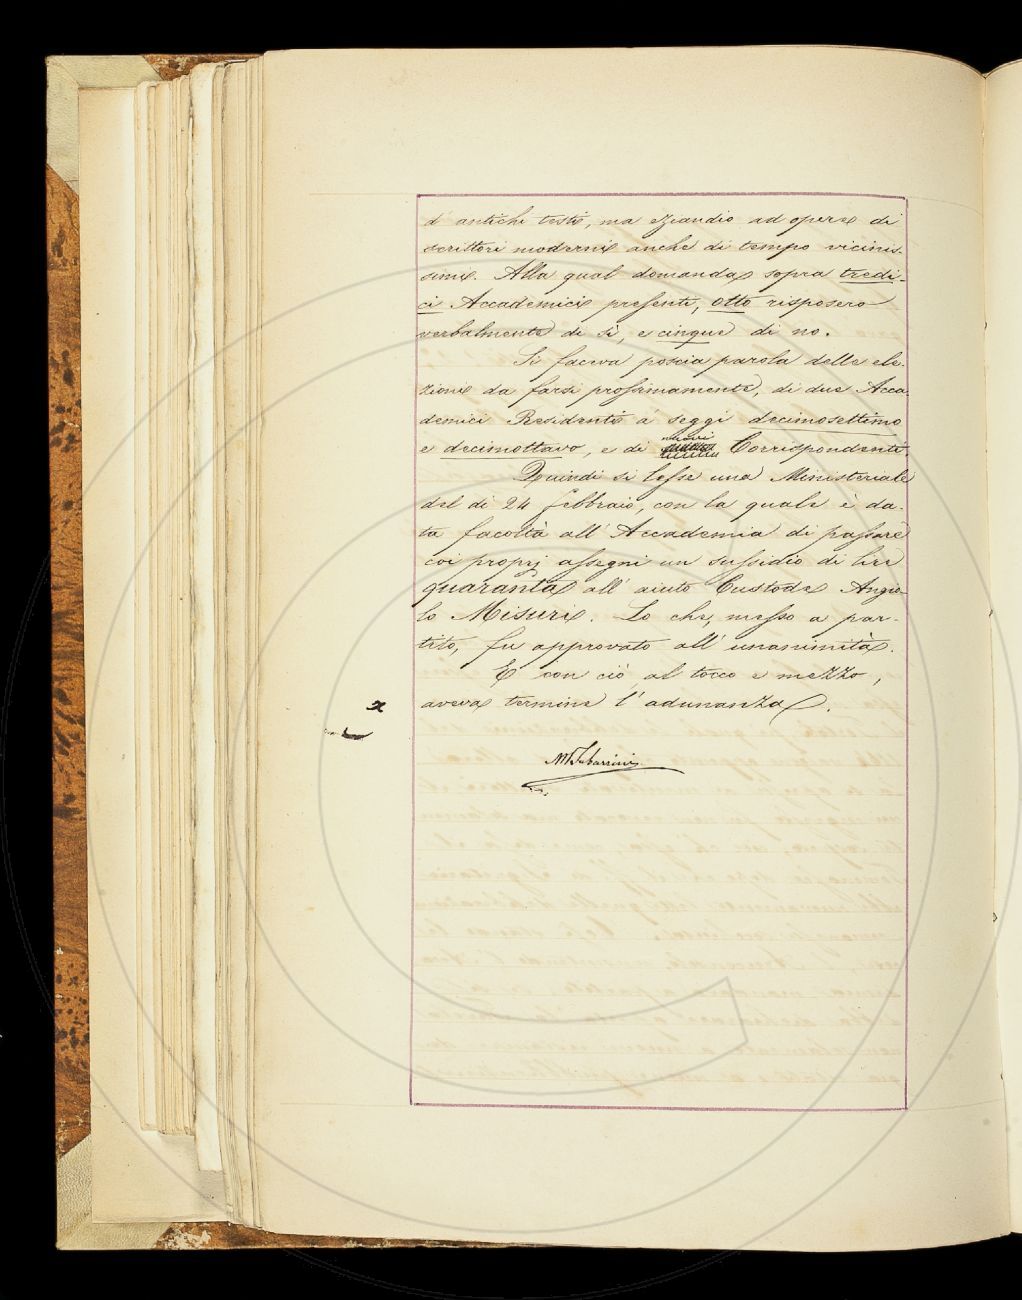 d' antichi testi, ma eziandio ad opere di
scrittori moderni anche di tempo vicinis-
simi. Alla qual domanda, sopra tredi-
ci Accademici presenti, otto risposero
verbalmente di sì, e cinque di no.
Si faceva poscia parola delle ele-
zioni da farsi prossimamente, di due Acca
demici Residenti a' seggi decimosettimo
e decimottavo, e di nuovi Corrispondenti
Quindi si lesse una Ministeriale
del dì 24 febbraio, con la quale è da-
ta facoltà all' Accademia di passare
coi proprj assegni un sussidio di lire
quaranta all' aiuto Custode Angio-
lo Misuri. Lo che, messo a par-
tito, fu approvato all' unanimità.
E con ciò al tocco e mezzo,
aveva termine l' adunanza.
MTabarrini